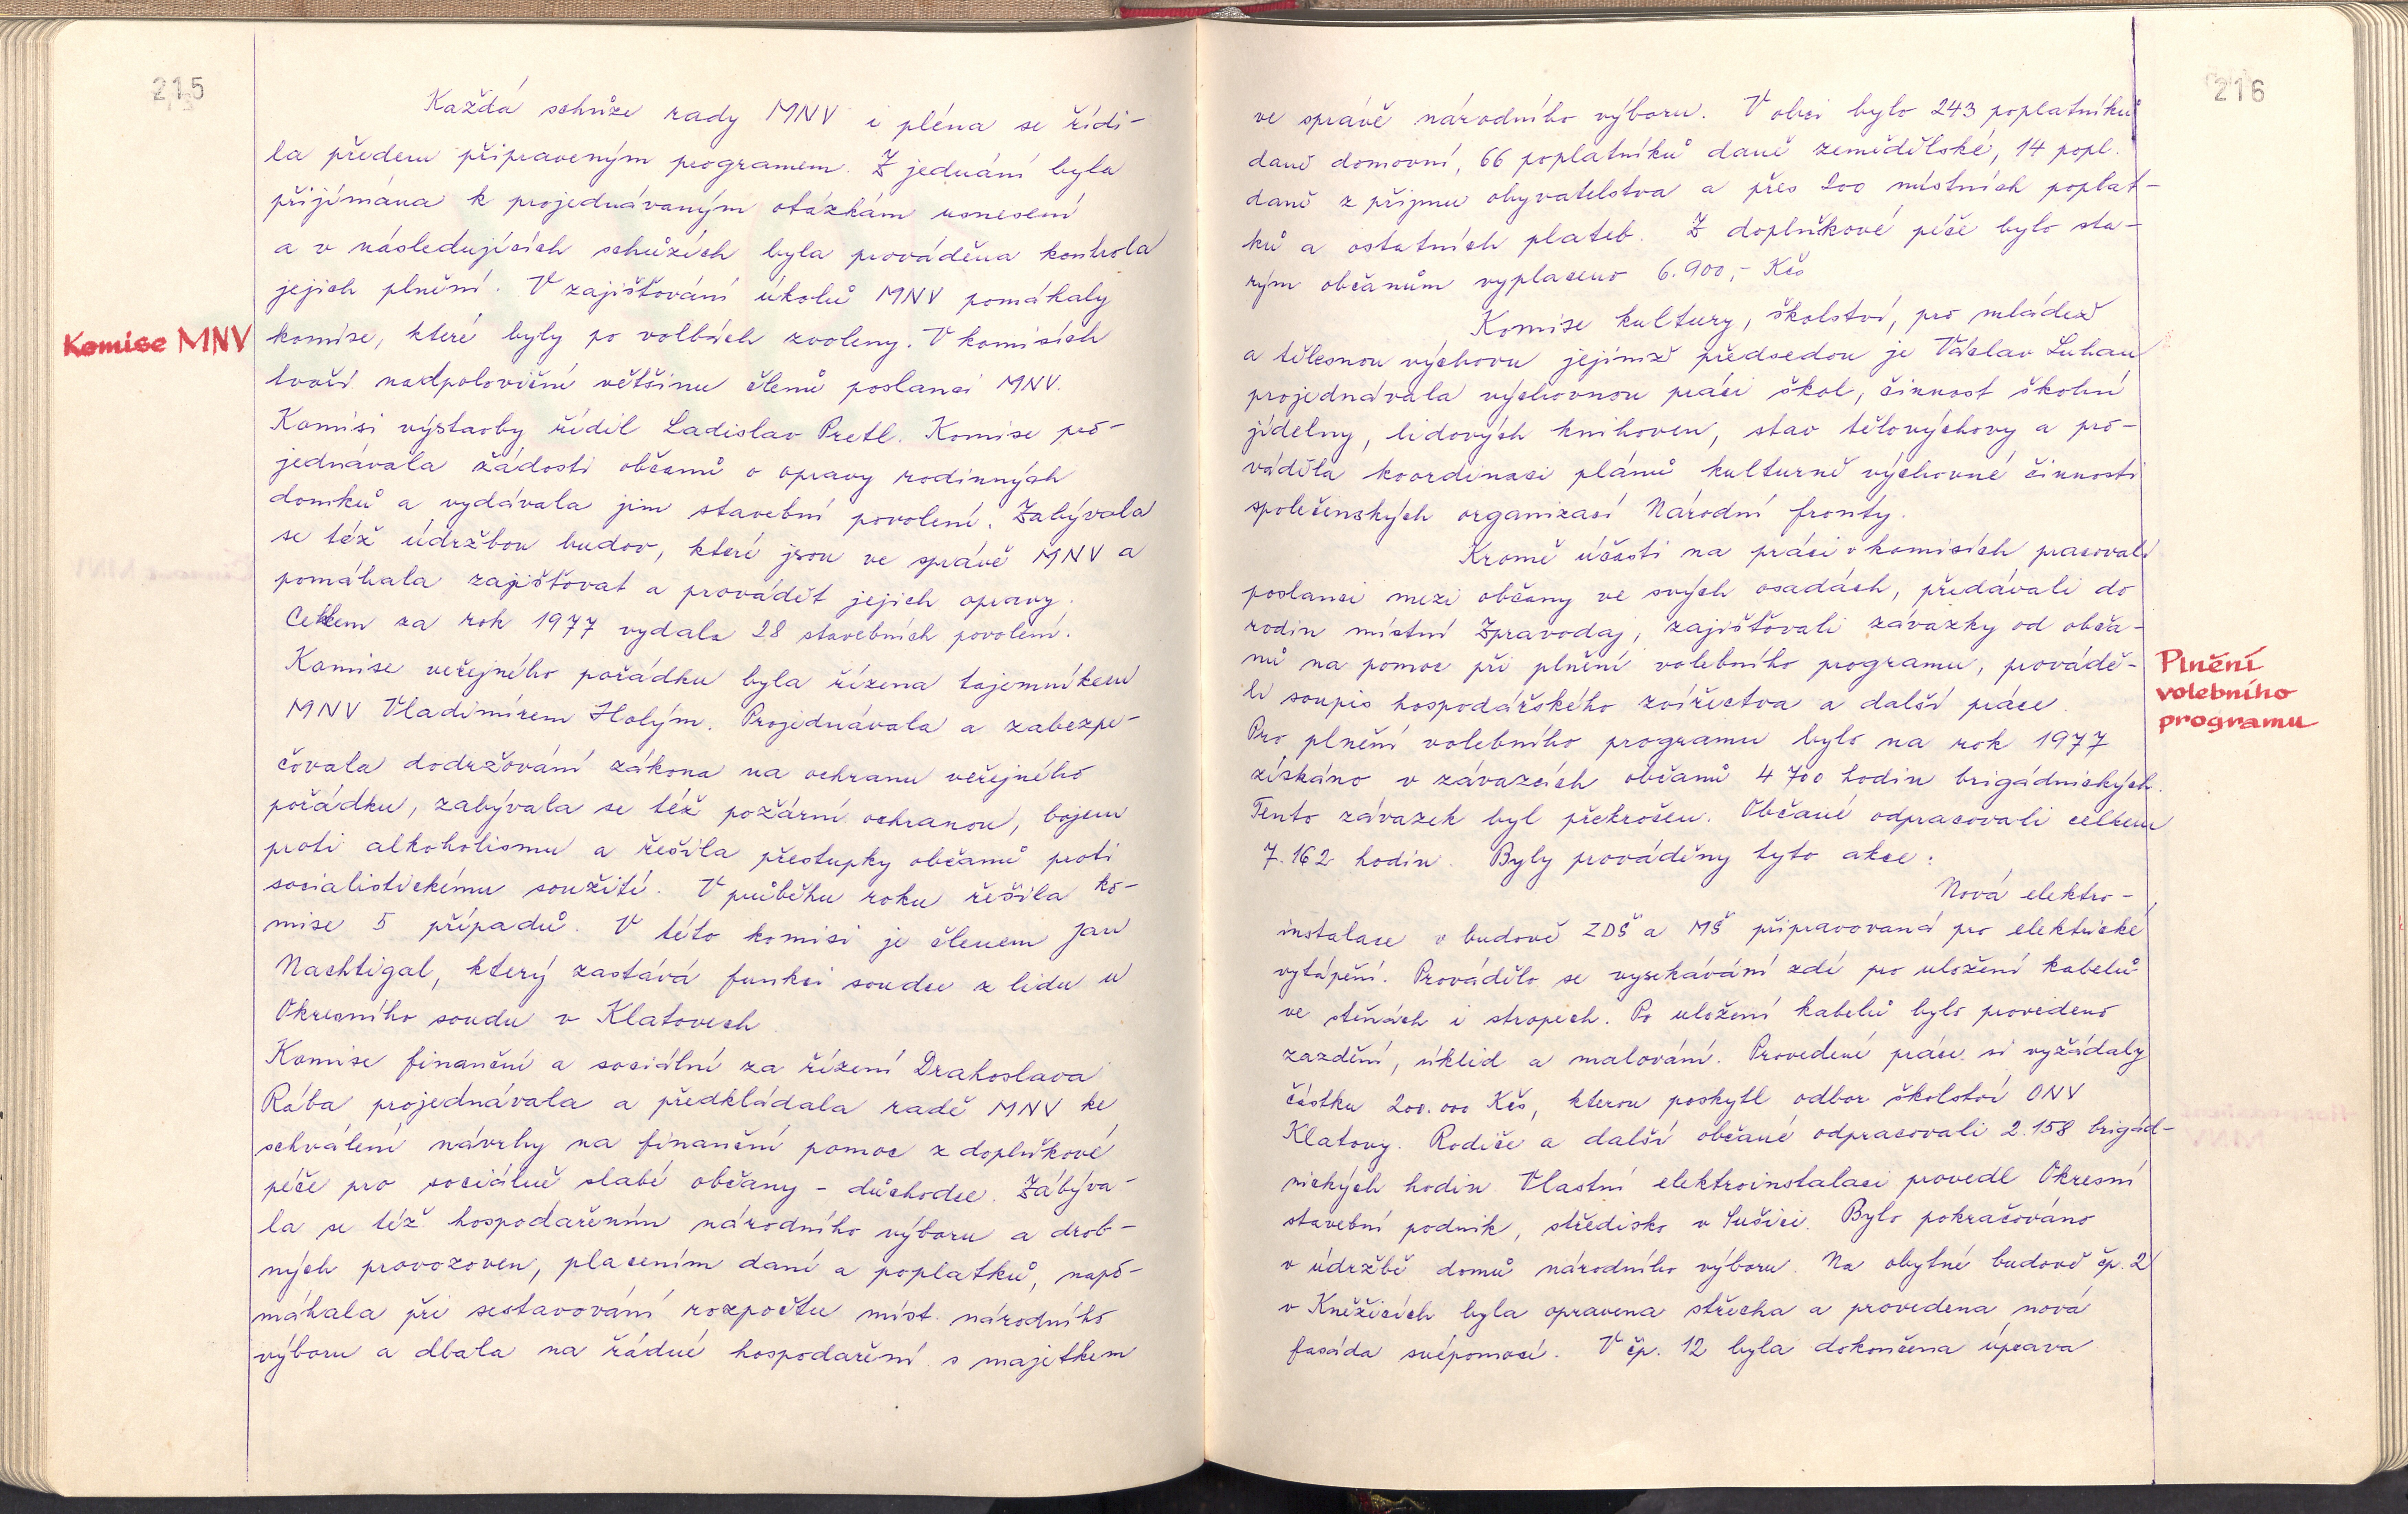 215
Každá schůze rady MNV i pléna se řídi-
la předem připraveným programem. Z jednání byla
přijímána k projednávaným otázkám usnesení
a v následujících schůzích byla prováděna kontrola
jejich plnění. V zajišťování úkolů MNV pomáhaly
Komise MNV
komise, které byly po volbách zvoleny. V komisích
tvoří nadpoloviční většinu členů poslanci MNV.
Komisi výstavby řídil Ladislav Pretl. Komise pro-
jednávala žádosti občanů o opravy rodinných
domků a vydávala jim stavební povolení. Zabývala
se též údržbou budov, které jsou ve správě MNV a
pomáhala zajišťovat a provádět jejich opravy.
Celkem za rok 1977 vydala 28 stavebních povolení.
Komise veřejného pořádku byla řízena tajemníkem
MNV Vladimírem Holým. Projednávala a zabezpe-
čovala dodržování zákona na ochranu veřejného
pořádku, zabývala se též požární ochranou, bojem
proti alkoholismu a řešila přestupky občanů proti
socialistickému soužití. V průběhu roku řešila ko-
mise 5 případů. V této komisi je členem Jan
Nachtigal, který zastává funkci soudce z lidu u
Okresního soudu v Klatovech
Komise finanční a sociální za řízení Drahoslava
Rába projednávala a předkládala radě MNV ke
schválení návrhy na finanční pomoc z doplňkové
péče pro sociálně slabé občany - důchodce. Zabýva-
la se též hospodařením národního výboru a drob-
ných provozoven, placením daní a poplatků, napo-
máhala při sestavování rozpočtu míst. národního
výboru a dbala na řádné hospodaření s majetkem
216
ve správě národního výboru. V obci bylo 243 poplatníků
daně domovní, 66 poplatníků daně zemědělské, 14 popl.
daně z příjmu obyvatelstva a přes 200 místních poplat-
ků a ostatních plateb. Z doplňkové péče bylo sta-
rým občanům vyplaceno 6.900,- Kčs
Komise kultury, školství, pro mládež
a tělesnou výchovu jejímž předsedou je Václav Luhan
projednávala výchovnou práci škol, činnost školní
jídelny, lidových knihoven, stav tělovýchovy a pro-
váděla koordinaci plánů kulturně výchovné činnosti
společenských organizací Národní fronty.
Kromě účasti na práci v komisích pracovali
poslanci mezi občany ve svých osadách, předávali do
rodin místní Zpravodaj, zajišťovali závazky od obča-
nů na pomoc při plnění volebního programu, prováдě-
li soupis hospodářského zvířectva a další práce.
Plnění
volebního
programu
Pro plnění volebního programu bylo na rok 1977
získáno v závazcích občanů 4 700 hodin brigádnických.
Tento závazek byl překročen. Občané odpracovali celkem
7.162 hodin. Byly prováděny tyto akce:
Nová elektro-
instalace v budově ZDŠ a MŠ připravovaná pro elektrické
vytápění. Provádělo se vysekávání zdí pro uložení kabelů
ve stěnách i stropech. Po uložení kabelů bylo provedeno
zazdění, úklid a malování. Provedené práce si vyžádaly
částku 200.000 Kčs, kterou poskytl odbor školství ONV
Klatovy. Rodiče a další občané odpracovali 2.158 brigád-
nických hodin. Vlastní elektroinstalaci provedl Okresní
stavební podnik, středisko v Sušici. Bylo pokračováno
v údržbě domů národního výboru. Na obytné budově čp. 2
v Kněžicích byla opravena střecha a provedena nová
fasáda svépomocí. V čp. 12 byla dokončena úprava